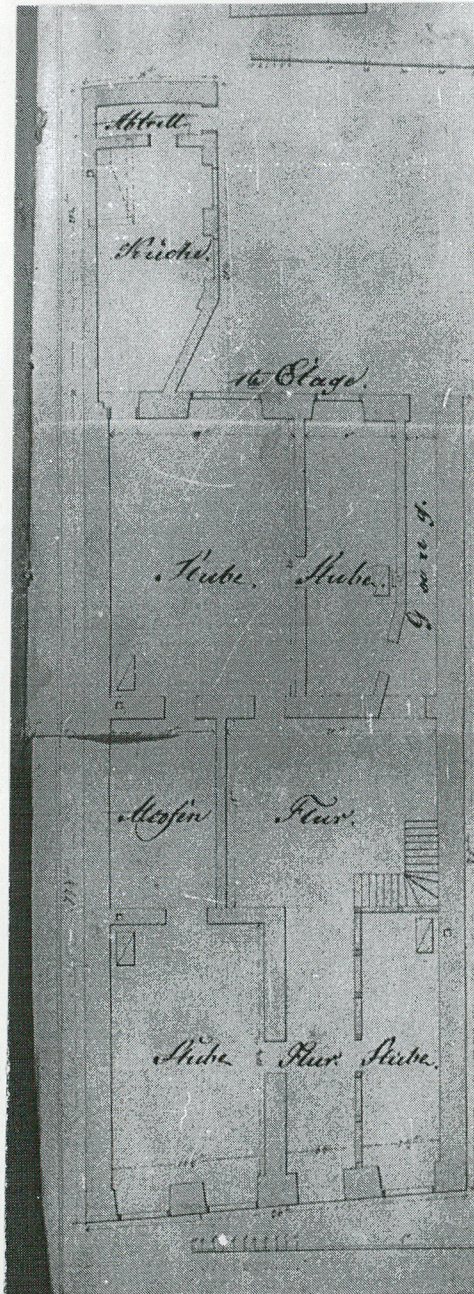 Abtritt
Küche.
1te Etage.
Stube. Stube.
Gang.
Alcofen Flur.
Stube Flur. Stube.